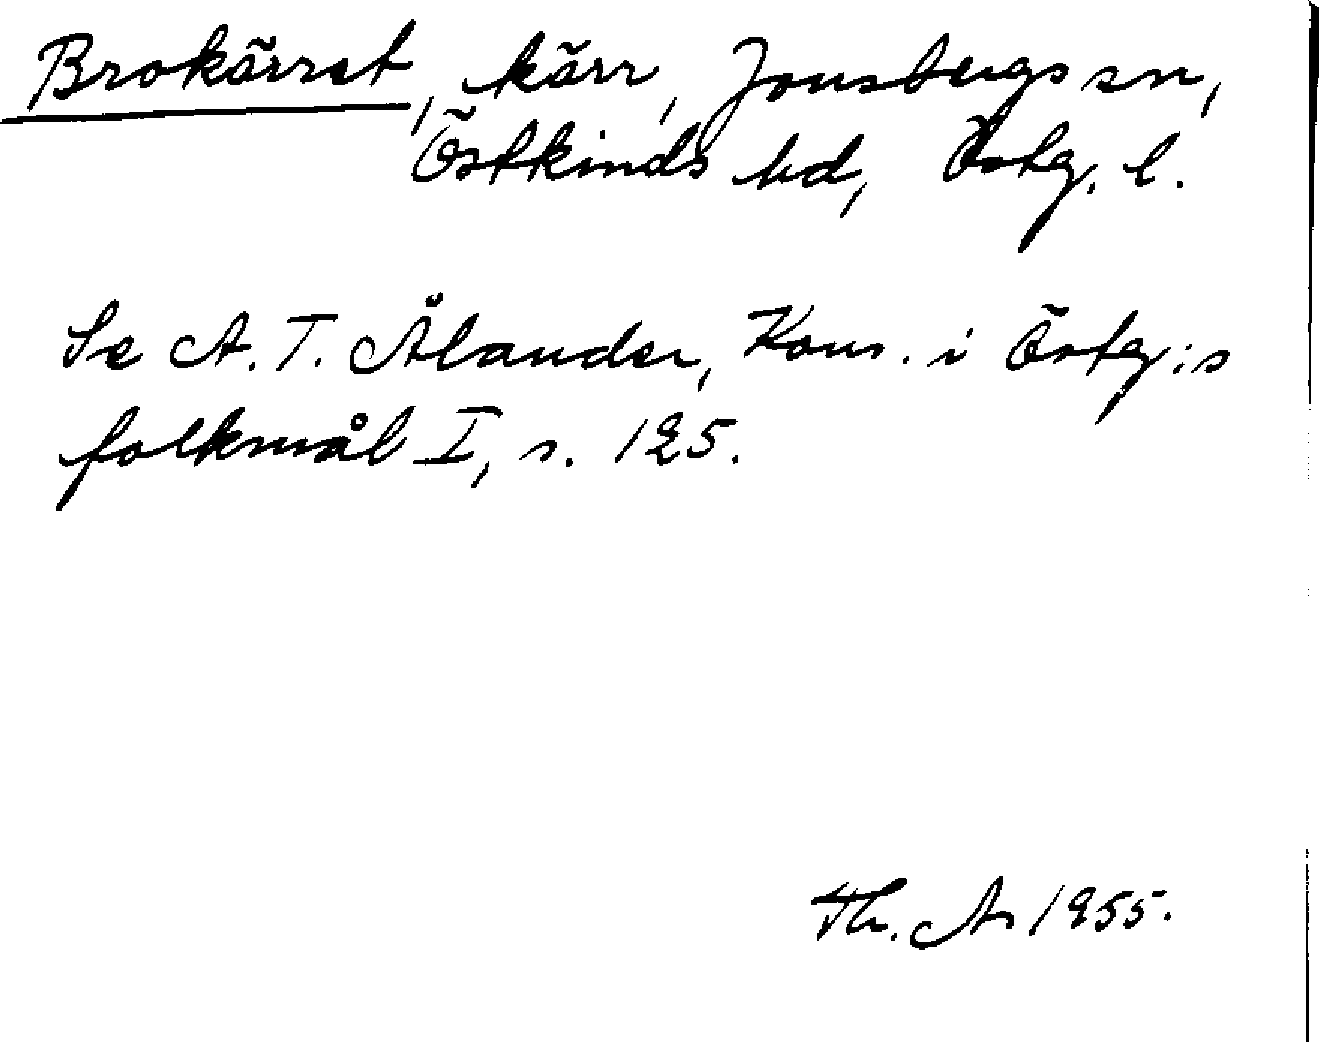 Brokärret, kärr, Jonsbergs sn,
Östkinds hd, Östg. l.
Se A. T. Ålander, Kons. i Östg:s
folkmål I, s. 125.
Th. A 1955.